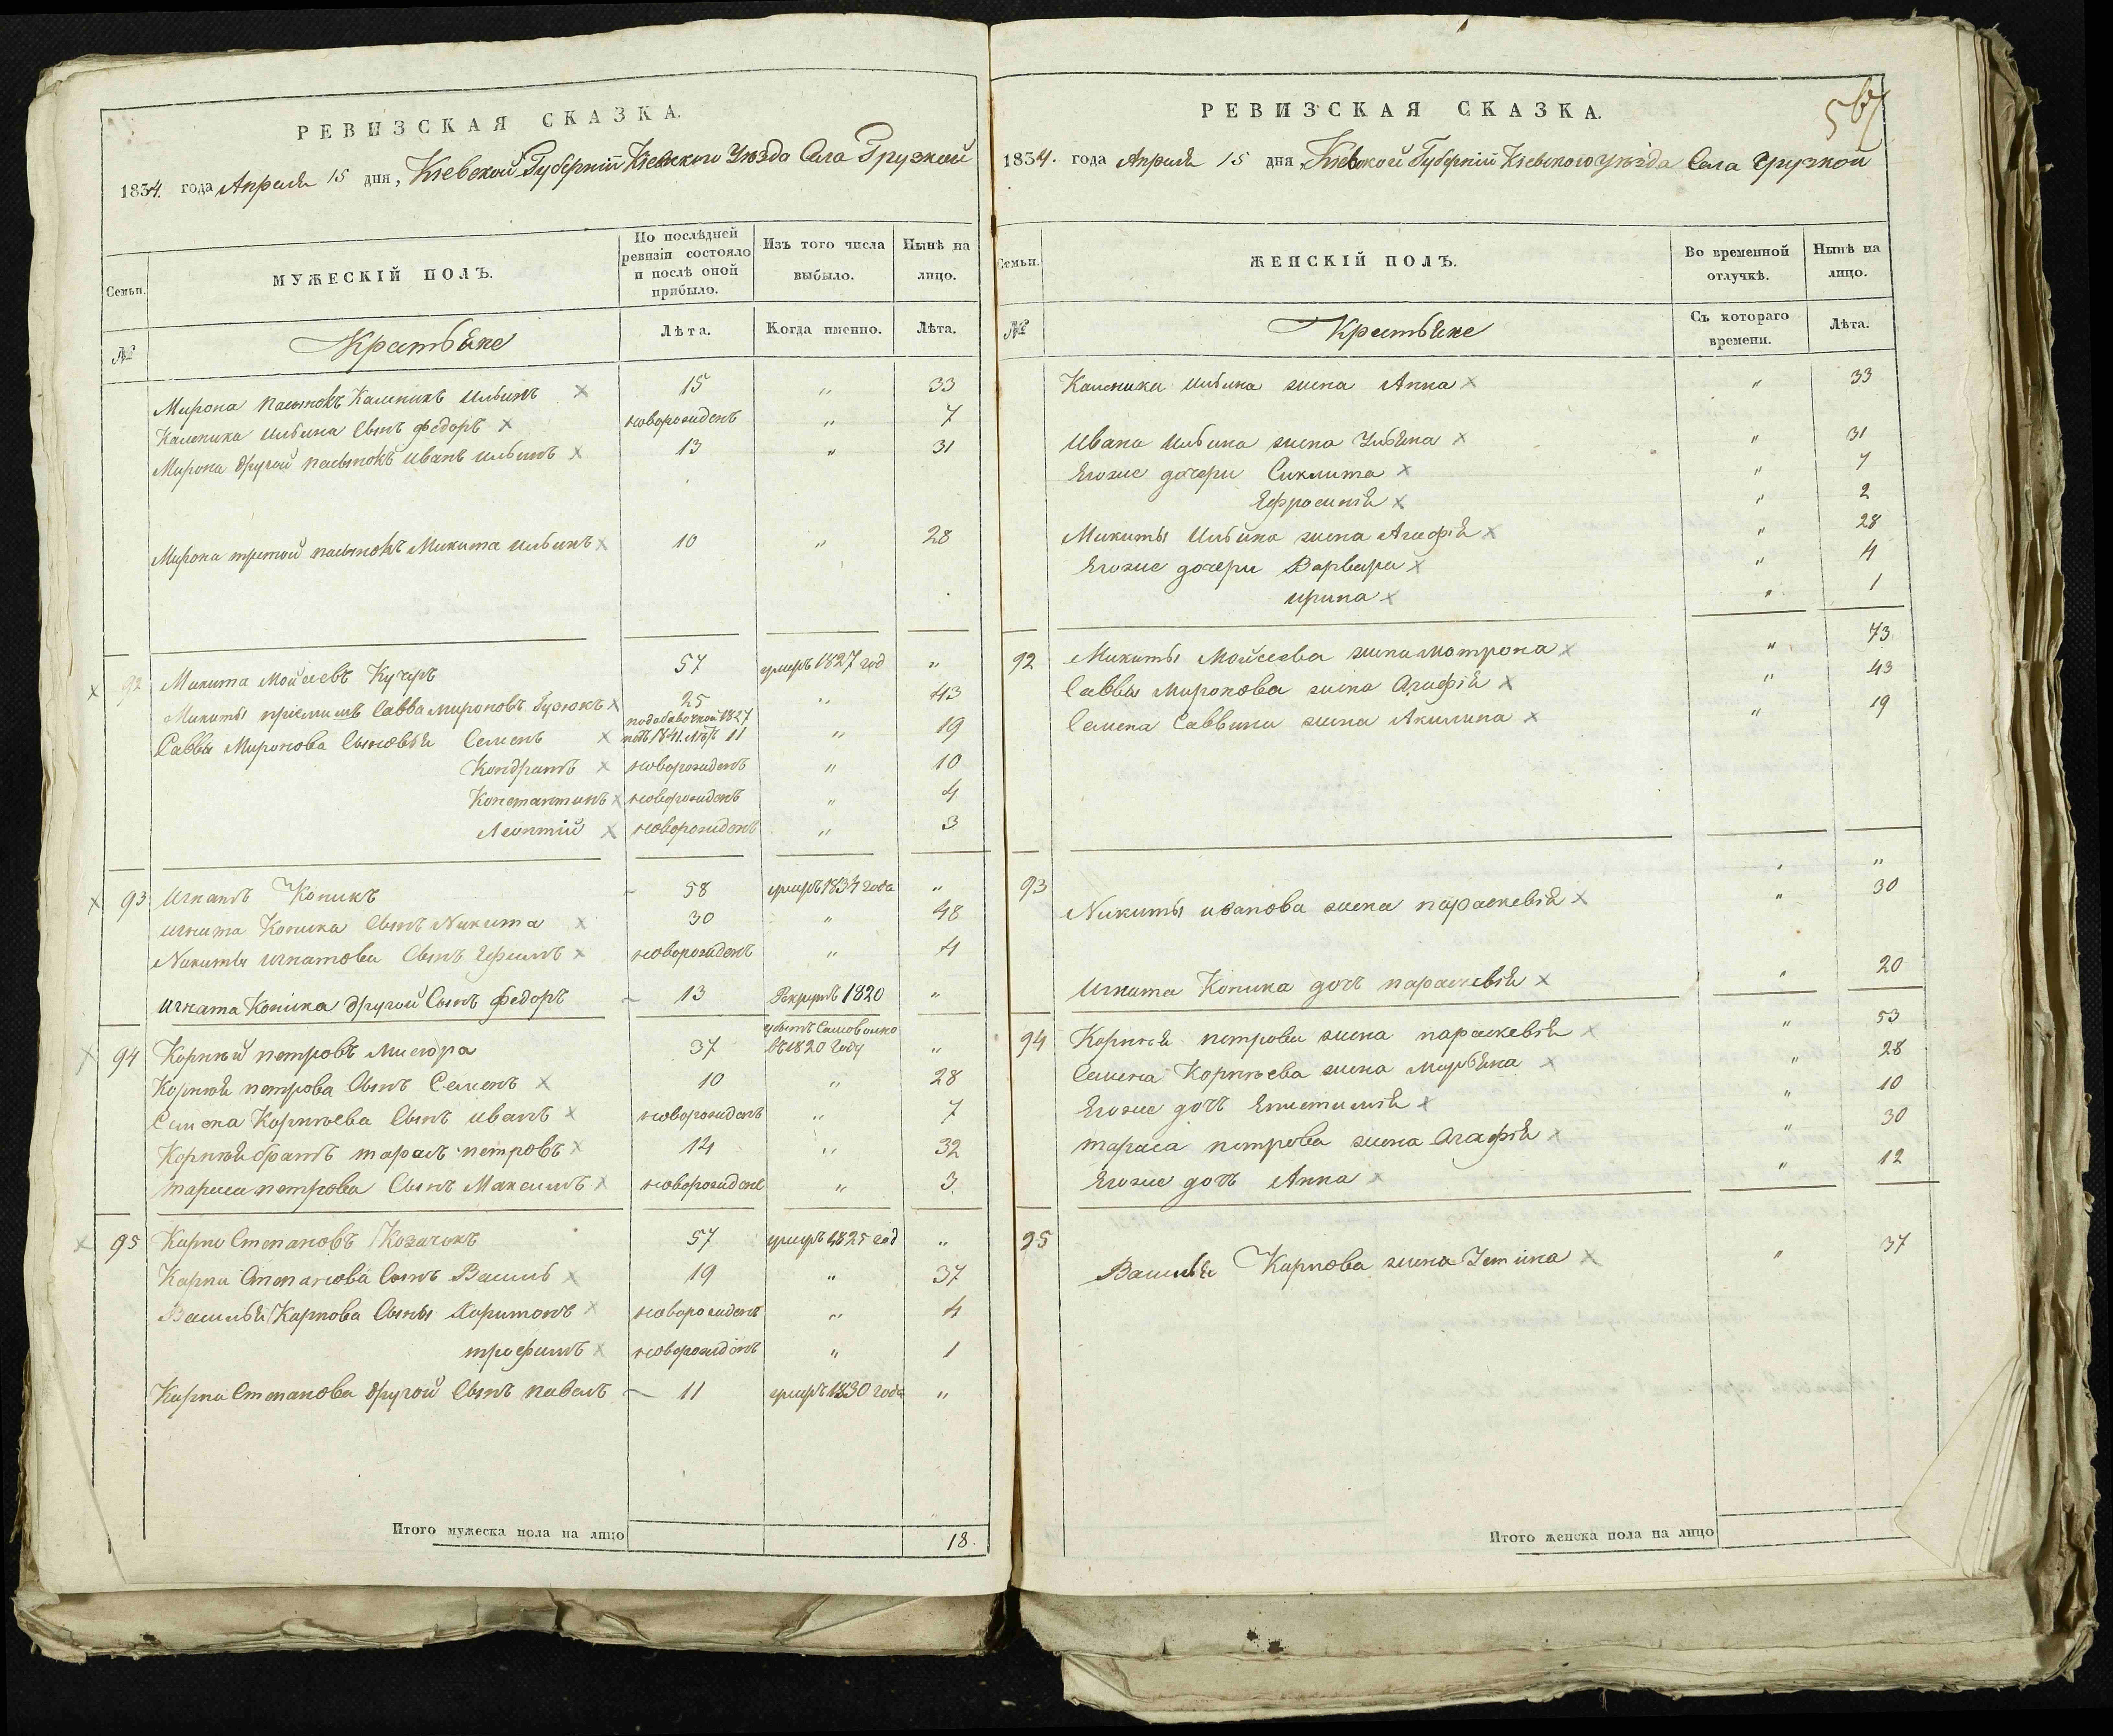 РЕВИЗСКАЯ СКАЗКА.
1834. года Апреля 15 дня, Кіевской Губерніи Кіевского Уѣзда Села Грузкой
Семьи.
МУЖЕСКІЙ ПОЛЪ.
По послѣдней ревизіи состояло и послѣ оной прибыло.
Изъ того числа выбыло.
Нынѣ на лицо.
№
Крестьяне
Лѣта.
Когда именно.
Лѣта.
Мирона пасынокъ Каленикъ Ильинъ 15 " 33
Каленика Ильина сынъ Федоръ новорожденъ " 7
Мирона другой пасынокъ Иванъ Ильинъ 13 " 31
Мирона третой пасынокъ Микита Ильинъ 10 " 28
92 Микита Мойсеевъ Кучеръ 57 умеръ 1827 год "
Микиты приемышъ Савва Мироновъ 25 " 43
Саввы Миронова сыновья Семенъ 11 " 19
Кондратъ новорожденъ " 10
Константинъ новорожденъ " 4
Леонтій новорожденъ " 3
93 Игнатъ Коникъ 58 умеръ 1834 года "
Игната Коника сынъ Никита 30 " 48
Никиты Игнатова сынъ Ефимъ новорожденъ " 4
Игната Коника другой сынъ Федоръ 13 Рекрутъ 1820 "
94 Корней Петровъ 37 самовольно въ 1820 году "
Корнея Петрова сынъ Семенъ 10 " 28
Семена Корнѣева сынъ Иванъ новорожденъ " 7
Корнея братъ Тарасъ Петровъ 14 " 32
Тараса Петрова сынъ Максимъ новорожден " 3
95 Карпо Степановъ Козачокъ 57 умеръ 1825 год "
Карпа Степанова сынъ Василь 19 " 37
Василья Карпова сыны Харитонъ новорожденъ " 4
Трофимъ новорожденъ " 1
Карпа Степанова другой сынъ Павелъ 11 умеръ 1830 года "
Итого мужеска пола на лицо 18.
РЕВИЗСКАЯ СКАЗКА.
1834. года Апреля 15 дня, Кіевской Губерніи Кіевского Уѣзда Села Грузкой
Семьи.
ЖЕНСКІЙ ПОЛЪ.
Во временной отлучкѣ.
Нынѣ на лицо.
№
Крестьяне
Съ котораго времени.
Лѣта.
Каленика Ильина жена Анна " 33
Ивана Ильина жена Ульяна " 31
Егоже дочери Сиклита " 7
Ефросинія " 2
Микиты Ильина жена Агафія " 28
Егоже дочери Варвара " 4
Ирина " 1
92 Микиты Мойсеева жена Мотрона " 73
Саввы Миронова жена Агафія " 43
Семена Саввина жена Акилина " 19
93 " "
Никиты жена Параскевія " 30
Игната Коника дочъ Параскевія " 20
94 Корнея Петрова жена Параскевія " 53
Семена Корнѣева жена Марьяна " 28
Егоже дочъ Епистимія " 10
Тараса Петрова жена Агафія " 30
Егоже дочъ Анна " 12
95 Василья Карпова жена Устина " 37
Итого женска пола на лицо